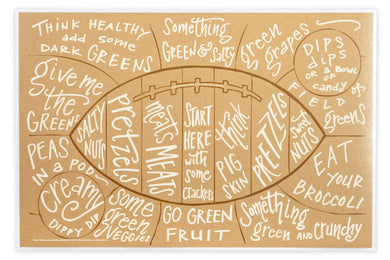 THINK HEALTHY
add some
DARK GREENS
Something
GREEN & Salty
green
grapes
DIPS
dips
OR a BOWL
OF
candy
give me
the
GREENS
FIELD OF
greens
SALTY
NUTS
Pretzels
meats MEATS
START
HERE
with
some
crackers
think
PIG
SKIN
PRETZELS
sweet
NUTS
PEAS
IN A
POD
EAT
YOUR
BROCCOLI
Creamy
DIPPY DIP
some
green
VEGGIES
GO GREEN
FRUIT
Something
green AND crunchy